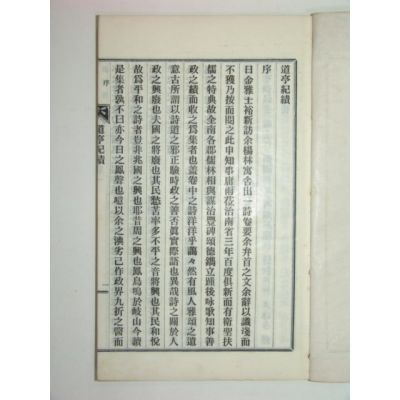 道亭紀績
序
日金雅士裕新訪余楊林寓舍出一詩卷要余弁首之文余辭以識淺而
不獲乃按而閱之此申知事庸雨莅治南省三年百度俱新而有衛聖扶
儒之特典故全南各郡儒林相與謀治豐碑頌德鐫立踵後咏歌知事善
政之績而收之爲集者也盖卷中之詩洋洋乎藹々然有風人雅頌之道
意古所謂以詩道之邪正驗時政之善否眞實際語也異哉詩之關於人
政之興廢也夫國之將廢也其民愁苦率多不平之音將興也其民和悅
故爲平和之詩者豈非兆國之興也耶昔周之興也鳳鳥鳴於岐山今續
是集者孰不曰亦今日之鳳聲也噫以余之湅劣已作政界九折之醫而
序
道亭紀績
一